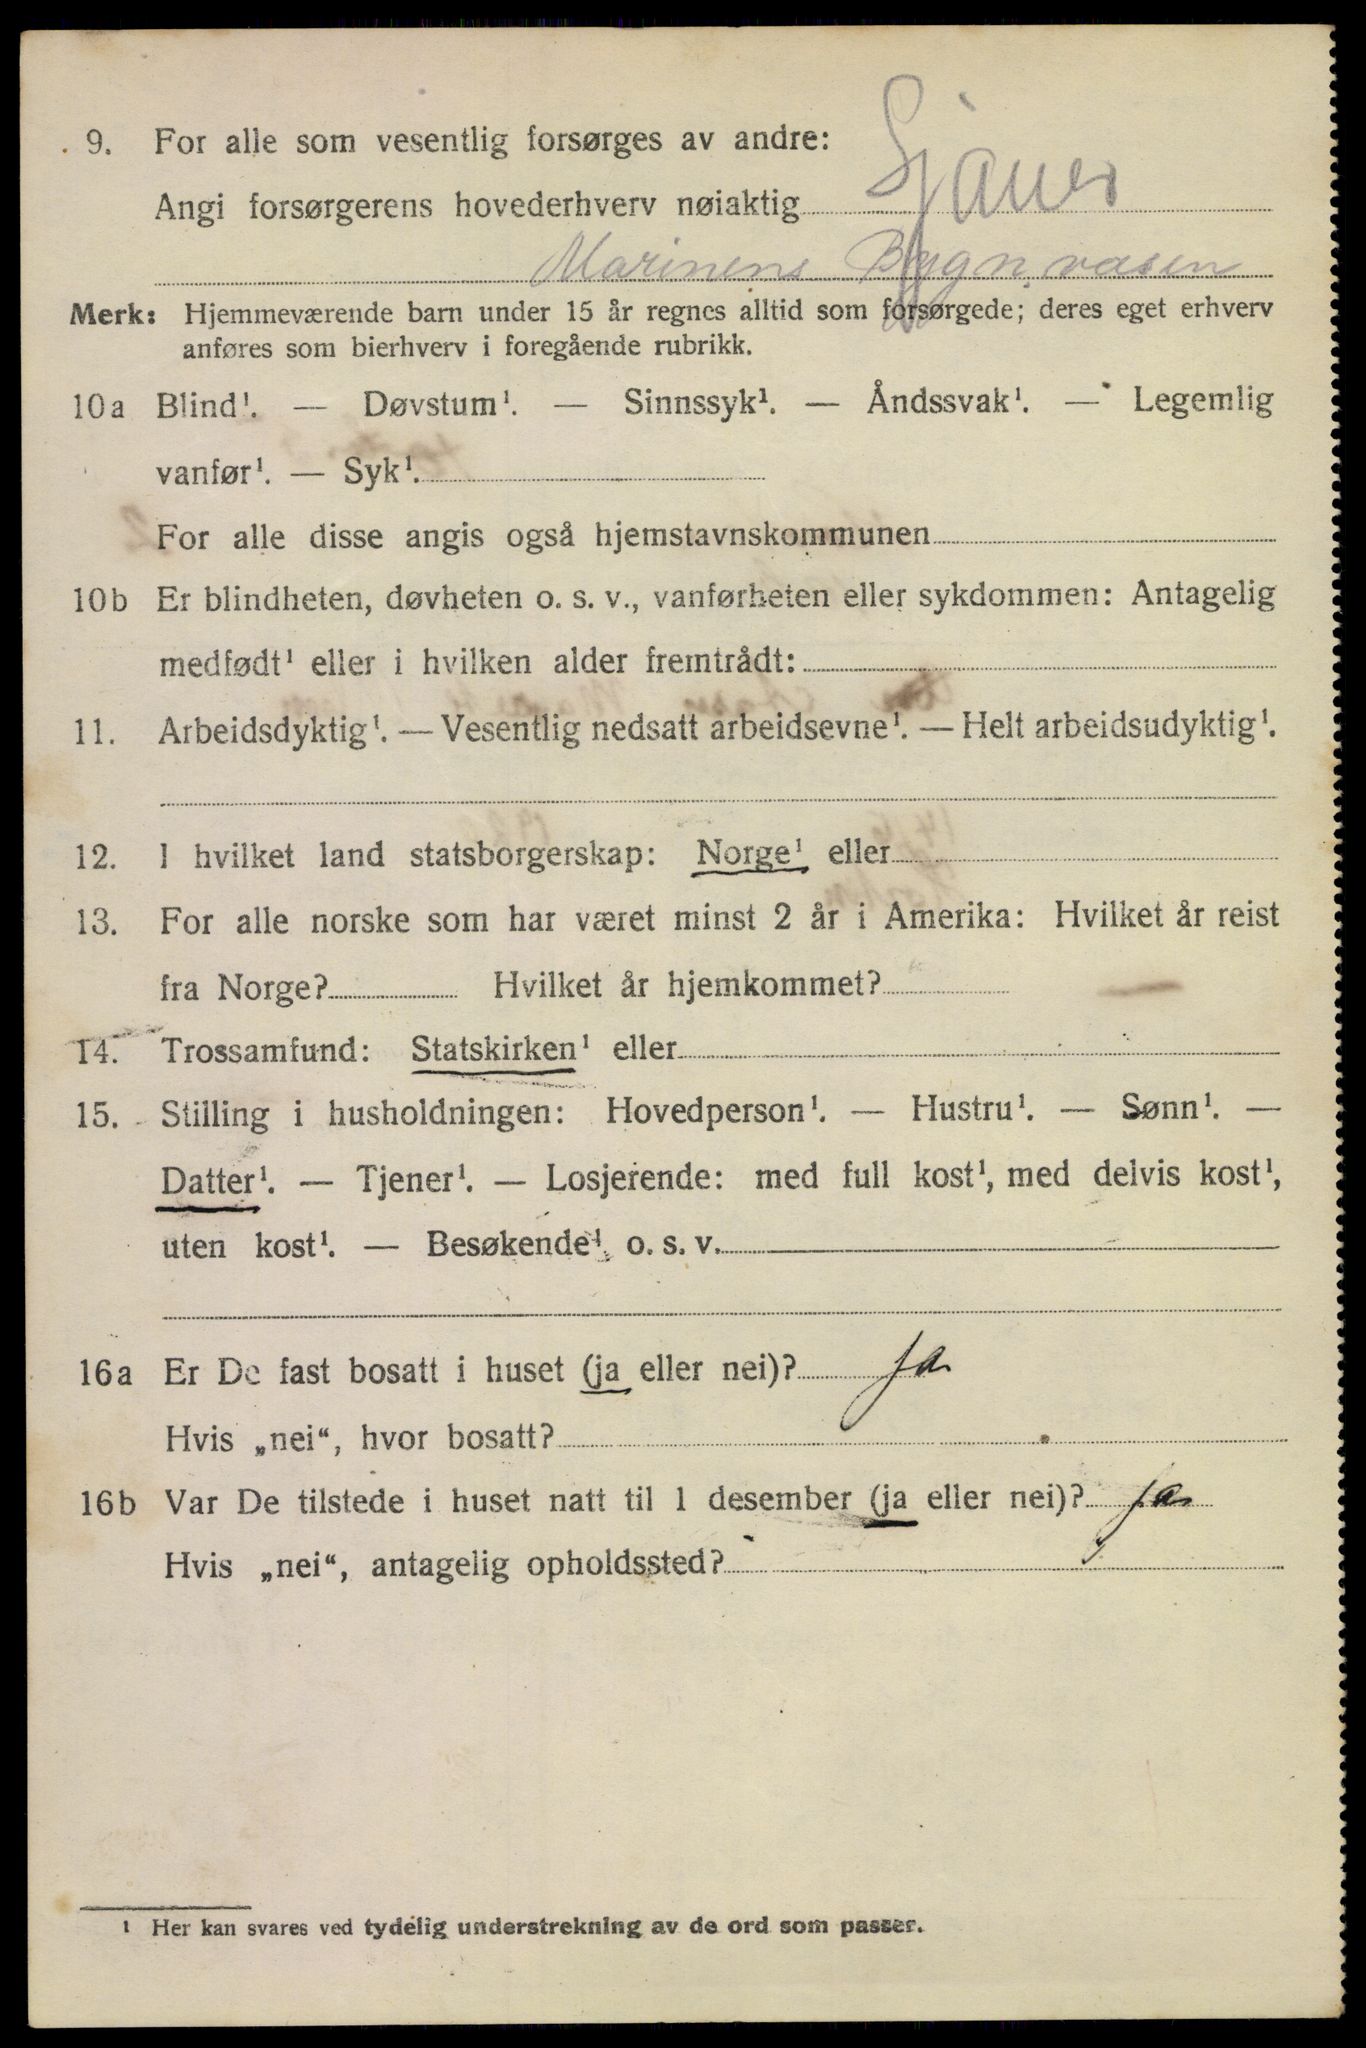 9. For alle som vesentlig forsørges av andre:
Angi forsørgerens hovederhverv nøiaktig Sjauer
Marinens Bygn.væsen
Merk: Hjemmeværende barn under 15 år regnes alltid som forsørgede; deres eget erhverv
anføres som bierhverv i foregående rubrikk.
10a Blind¹. — Døvstum¹. — Sinnssyk¹. — Åndssvak¹. — Legemlig
vanfør¹. — Syk¹.
For alle disse angis også hjemstavnskommunen
10b Er blindheten, døvheten o. s. v., vanførheten eller sykdommen: Antagelig
medfødt¹ eller i hvilken alder fremtrådt:
11. Arbeidsdyktig¹. — Vesentlig nedsatt arbeidsevne¹. — Helt arbeidsudyktig¹.
12. I hvilket land statsborgerskap: Norge¹ eller
13. For alle norske som har været minst 2 år i Amerika: Hvilket år reist
fra Norge? Hvilket år hjemkommet?
14. Trossamfund: Statskirken¹ eller
15. Stilling i husholdningen: Hovedperson¹. — Hustru¹. — Sønn¹. —
Datter¹. — Tjener¹. — Losjerende: med full kost¹, med delvis kost¹,
uten kost¹. — Besøkende¹ o. s. v.
16a Er De fast bosatt i huset (ja eller nei)? ja
Hvis „nei“, hvor bosatt?
16b Var De tilstede i huset natt til 1 desember (ja eller nei)? ja
Hvis „nei“, antagelig opholdssted?
¹ Her kan svares ved tydelig understrekning av de ord som passer.